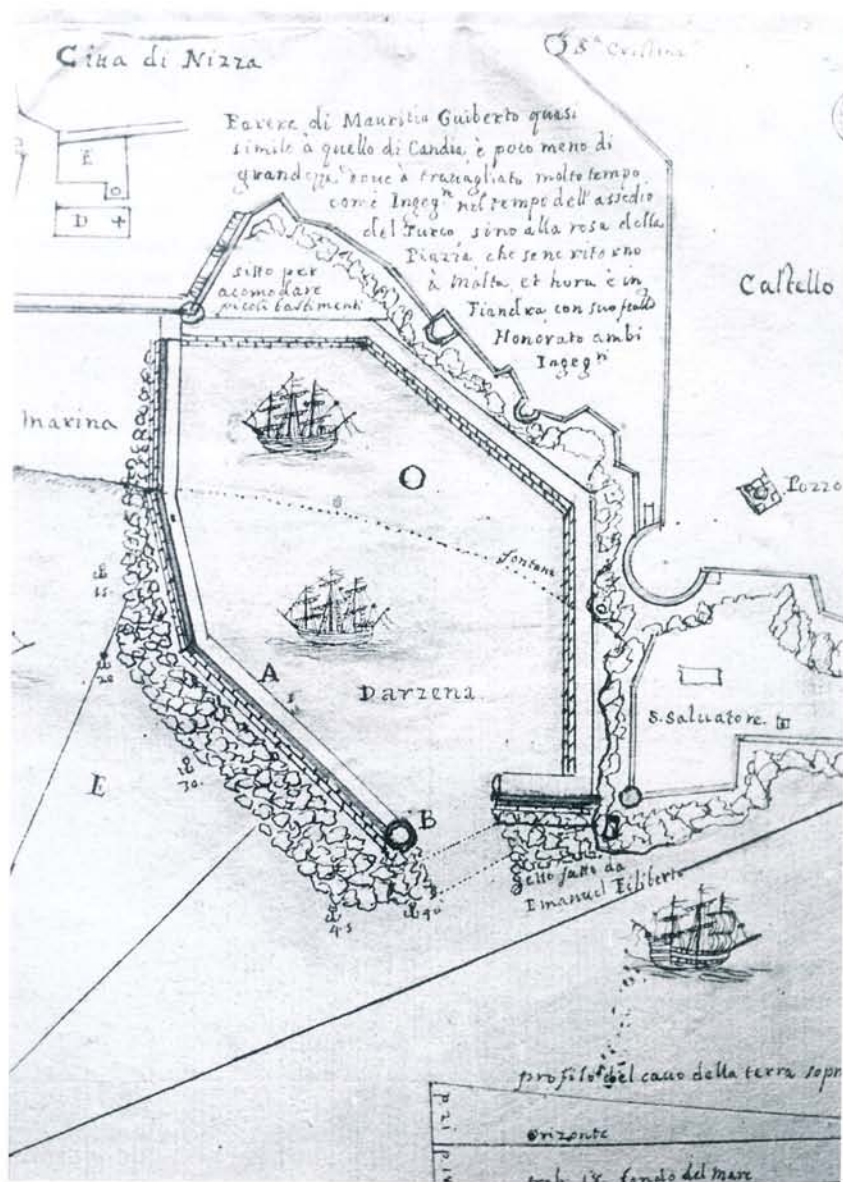 Citta di Nizza
S.ta Cristina
Parere di Mauritio Guiberto quasi
simile à quello di Candia, è poco meno di
grandezza, doue à trauagliato molto tempo
come Ingeg.re nel tempo dell'assedio
del Turco sino alla resa della
Piazza che se ne ritorno
à Malta, et hora è in
Fiandra con suo fratello
Honorato ambi
Ingeg.ri
E
D
sitto per
acomodare
picoli bastimenti
Castello
Marina
Pozzo
fontana
15.
20
A
Darzena
S. Saluatore.
E
30.
B
Getto fatto da
Emanuel Filiberto
40
45
profilo del cauo della terra sopr
orizonte
fondo del mare